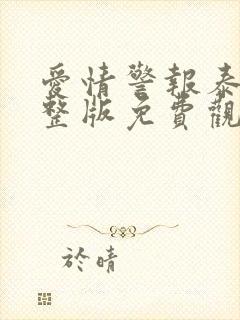 愛情警報泰
整版免費觀
於晴